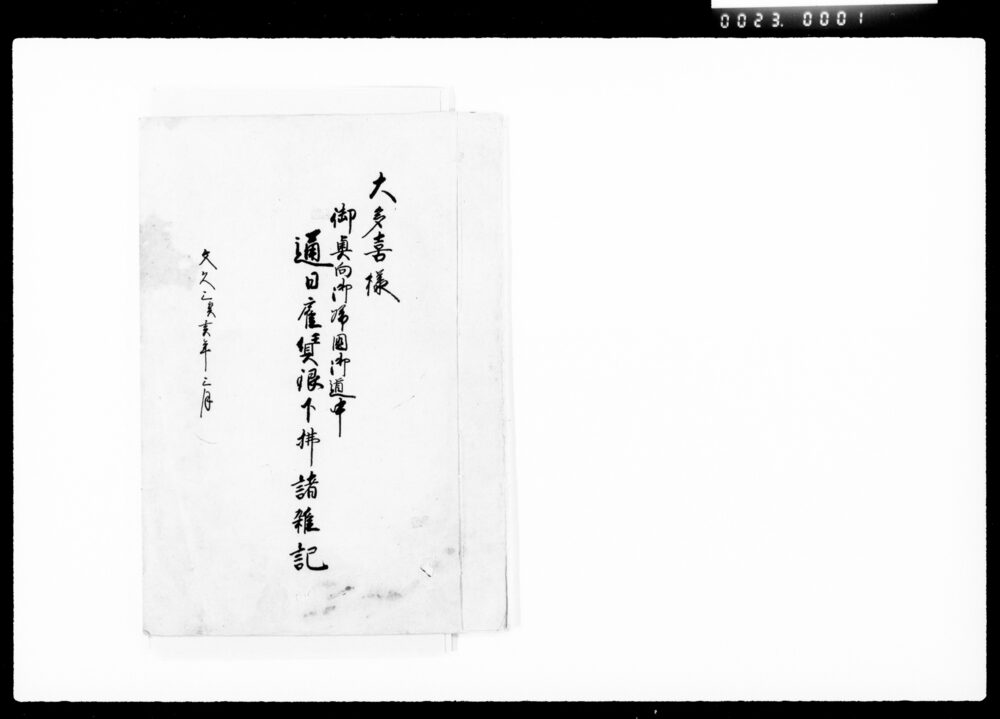 0023. 0001
大多喜様
御奥向御帰國御道中
通日雇賃銀下拂諸雑記
文久三癸亥年三月